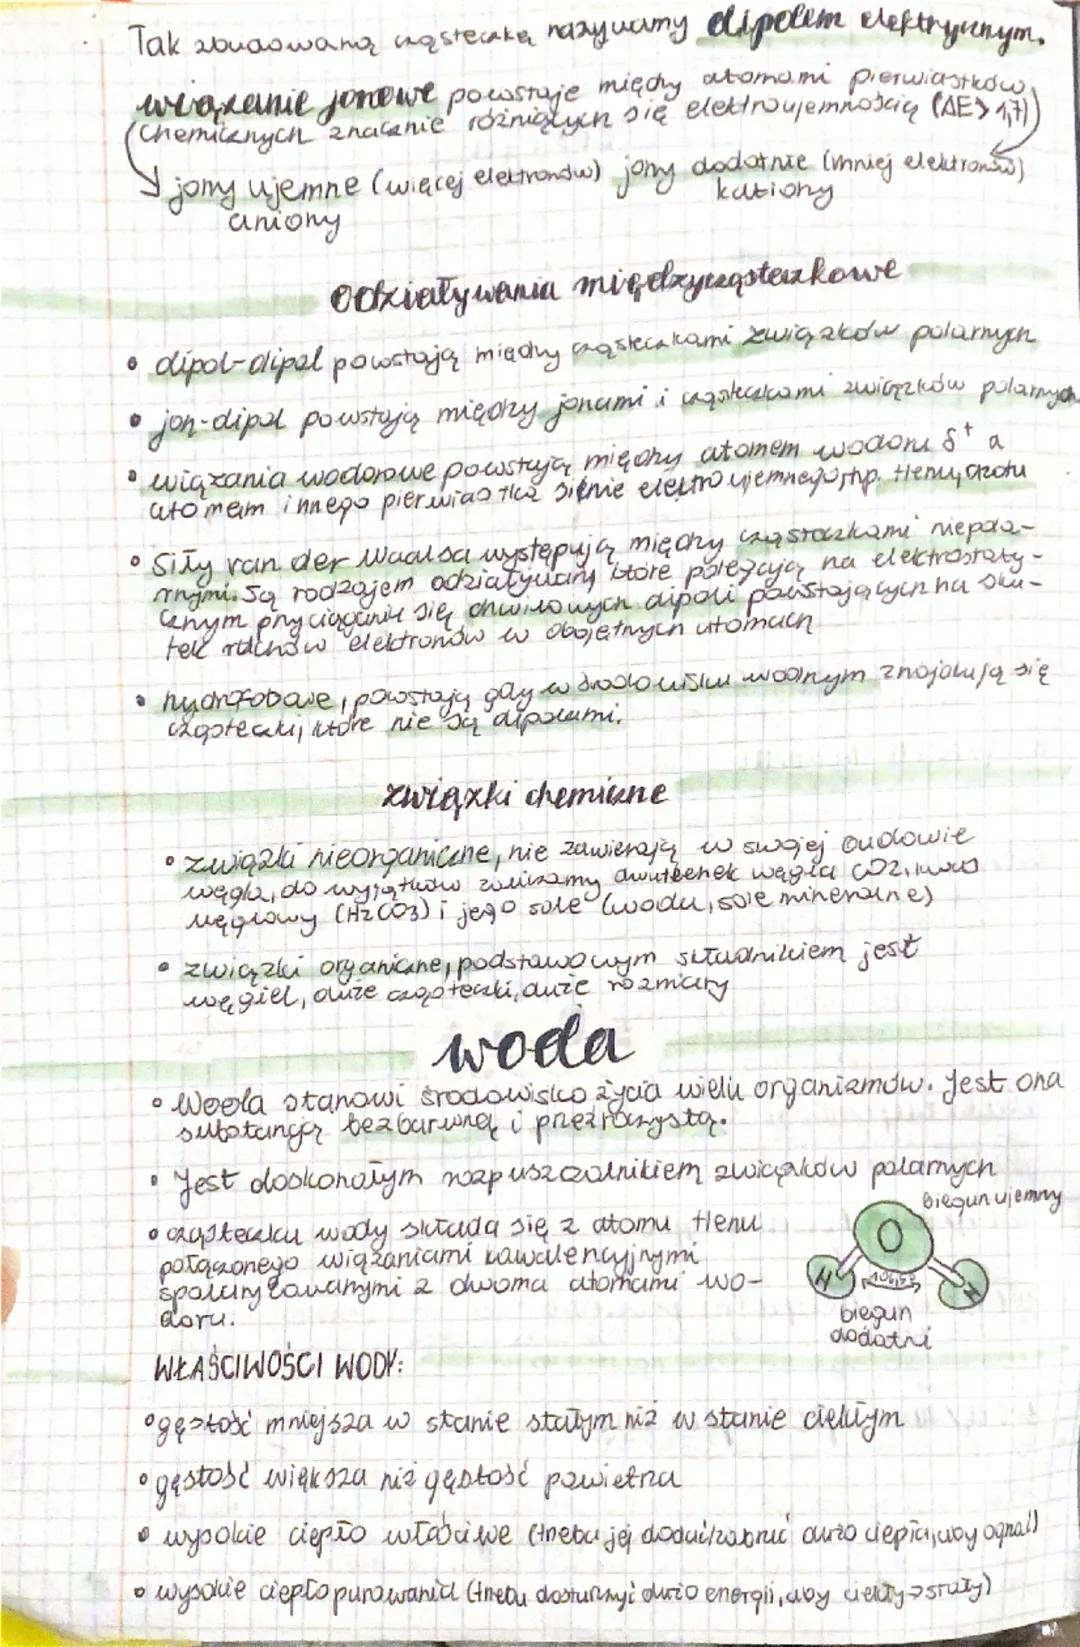 Tak zbudowaną cząsteczkę nazywamy dipolem elektrycznym.
wiązanie jonowe powstaje między atomami pierwiastków
chemicznych znacznie różniących się elektroujemnością (ΔE > 1,7)
jony ujemne (więcej elektronów) jony dodatnie (mniej elektronów)
aniony kationy
Oddziaływania międzycząsteczkowe
• dipol-dipol powstają między cząsteczkami związków polarnych
• jon-dipol powstają między jonami i cząsteczkami związków polarnych
• wiązania wodorowe powstają między atomem wodoru δ+ a
atomem innego pierwiastka silnie elektroujemnego, np. tlenu, azotu
• Siły van der Waalsa występują między cząsteczkami niepola-
rnymi. Są rodzajem odziaływań, które polegają na elektrostaty-
cznym przyciąganiu się chwilowych dipoli powstających na sku-
tek ruchów elektronów w obojętnych atomach
• hydrofobowe, powstają gdy w środowisku wodnym znajdują się
cząsteczki, które nie są dipolami.
związki chemiczne
• związki nieorganiczne, nie zawierają w swojej budowie
węgla, do wyjątków zaliczamy dwutlenek węgla CO2, kwas
węglowy (H2CO3) i jego sole (woda, sole mineralne)
• związki organiczne, podstawowym składnikiem jest
węgiel, duże cząsteczki, duże rozmiary
woda
• Woda stanowi środowisko życia wielu organizmów. Jest ona
substancją bezbarwną i przezroczystą.
• Jest doskonałym rozpuszczalnikiem związków polarnych
biegun ujemny
• cząsteczka wody składa się z atomu tlenu
połączonego wiązaniami kowalencyjnymi
spolaryzowanymi z dwoma atomami wo-
doru.
O
H H
biegun
dodatni
WŁAŚCIWOŚCI WODY:
• gęstość mniejsza w stanie stałym niż w stanie ciekłym
• gęstość większa niż gęstość powietrza
• wysokie ciepło właściwe (trzeba jej dodać/zabrać dużo ciepła, aby ogrzać)
• wysokie ciepło parowania (trzeba dostarczyć dużo energii, aby ciekły→stały)